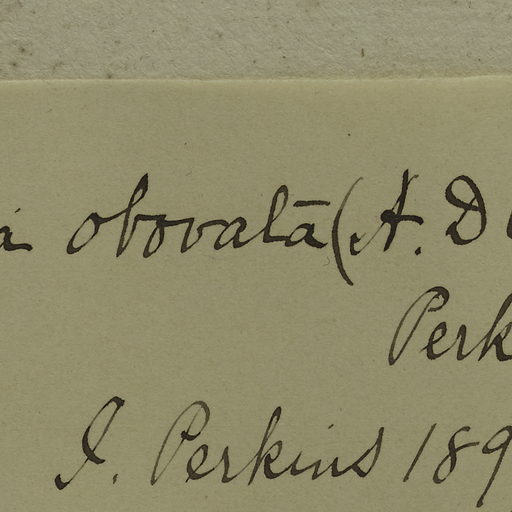 a obovata (A. D
Perk
J. Perkins 189